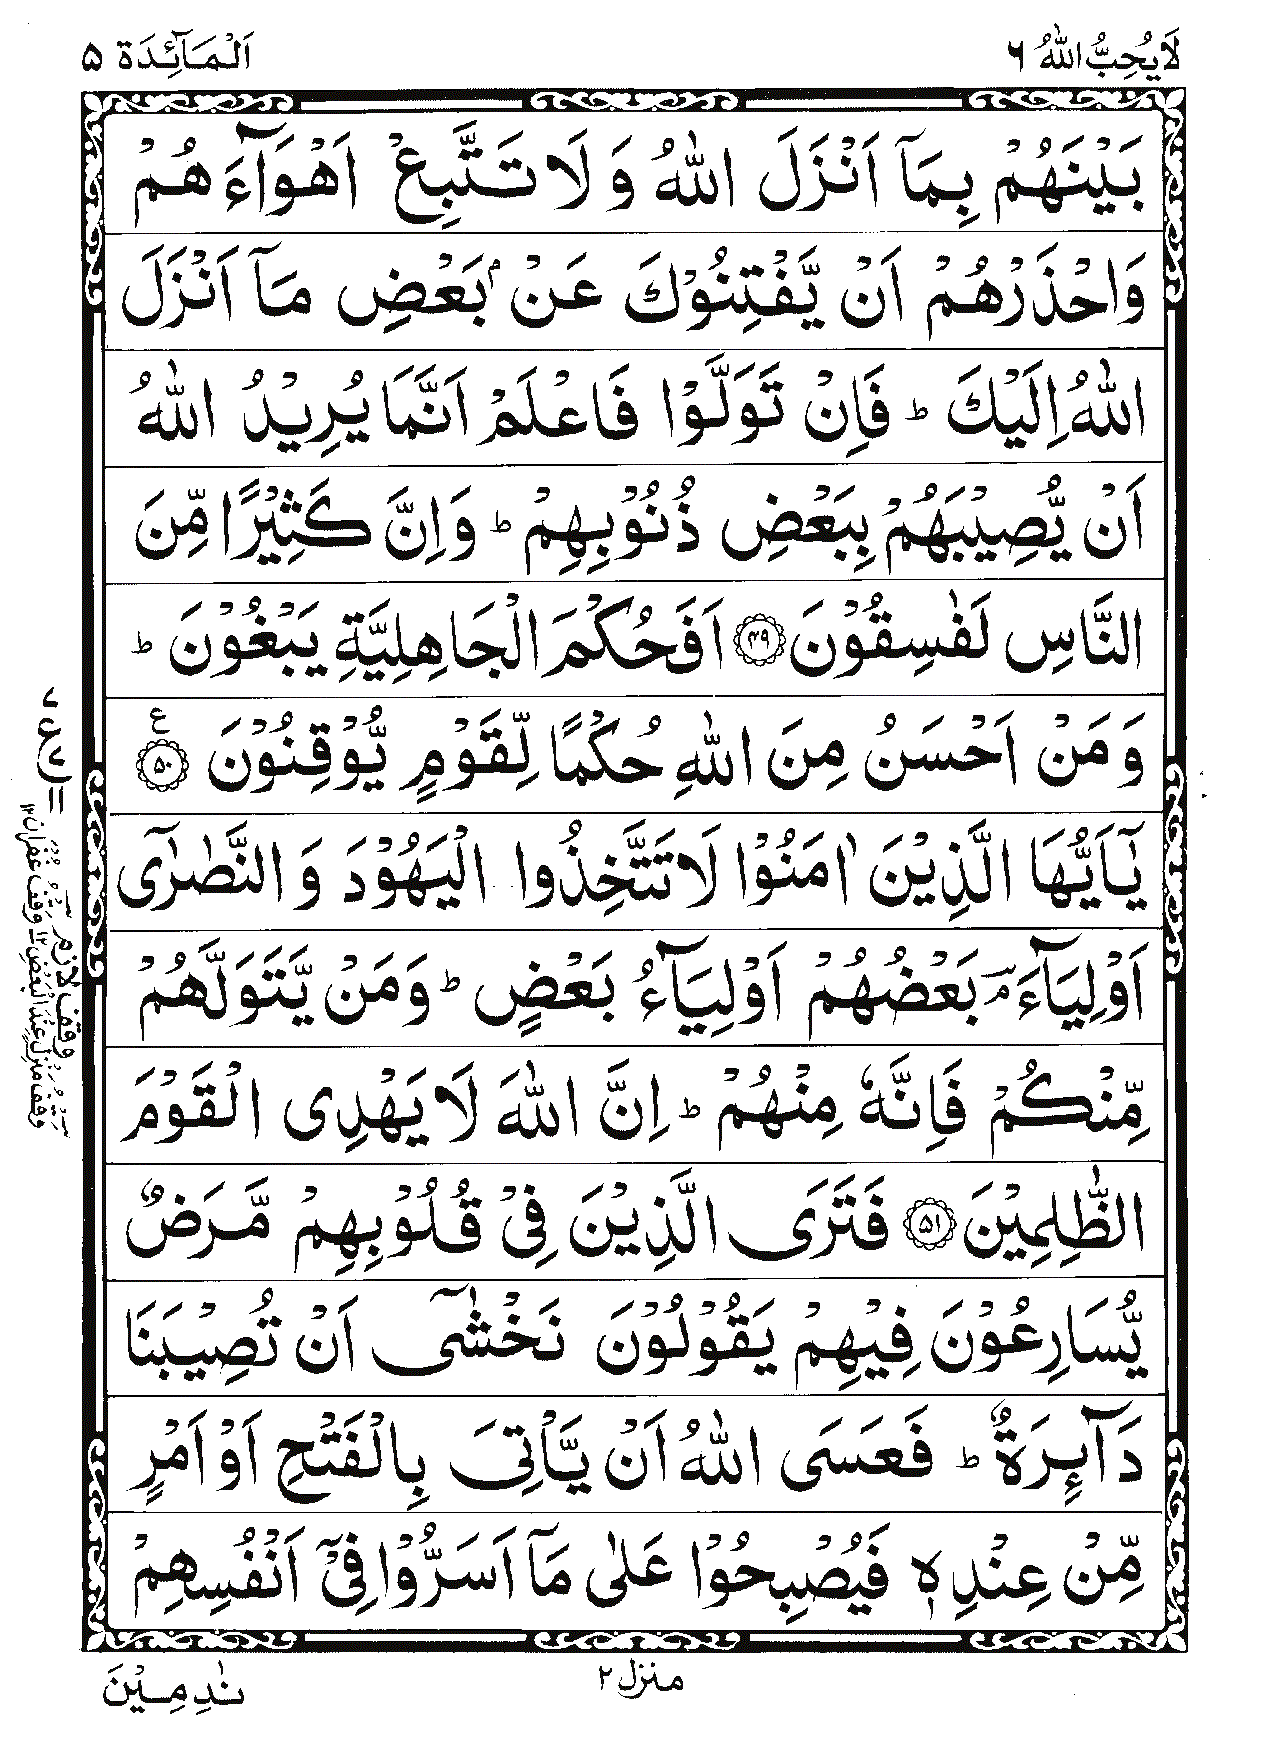 لَا يُحِبُّ اللهُ ٦
اَلْمَآئِدَة ٥
بَيْنَهُمْ بِمَآ اَنْزَلَ اللهُ وَ لَا تَتَّبِعْ اَهْوَآءَ هُمْ
وَاحْذَرْهُمْ اَنْ يَّفْتِنُوْكَ عَنْۢ بَعْضِ مَآ اَنْزَلَ
اللهُ اِلَيْكَ ؕ فَاِنْ تَوَلَّوْا فَاعْلَمْ اَنَّمَا يُرِيْدُ اللهُ
اَنْ يُّصِيْبَهُمْ بِبَعْضِ ذُنُوْبِهِمْ ؕ وَاِنَّ كَثِيْرًا مِّنَ
النَّاسِ لَفٰسِقُوْنَ ﴿۴۹﴾ اَفَحُكْمَ الْجَاهِلِيَّةِ يَبْغُوْنَ ؕ
وَ مَنْ اَحْسَنُ مِنَ اللهِ حُكْمًا لِّقَوْمٍ يُّوْقِنُوْنَ ﴿۵۰﴾ ع
يٰۤاَيُّهَا الَّذِيْنَ اٰمَنُوْا لَا تَتَّخِذُوا الْيَهُوْدَ وَ النَّصٰرٰۤى
اَوْلِيَآءَ ۘ بَعْضُهُمْ اَوْلِيَآءُ بَعْضٍ ؕ وَمَنْ يَّتَوَلَّهُمْ
مِّنْكُمْ فَاِنَّهٗ مِنْهُمْ ؕ اِنَّ اللهَ لَا يَهْدِى الْقَوْمَ
الظّٰلِمِيْنَ ﴿۵۱﴾ فَتَرَى الَّذِيْنَ فِىْ قُلُوْبِهِمْ مَّرَضٌ
يُّسَارِعُوْنَ فِيْهِمْ يَقُوْلُوْنَ نَخْشٰۤى اَنْ تُصِيْبَنَا
دَآئِرَةٌ ؕ فَعَسَى اللهُ اَنْ يَّاْتِىَ بِالْفَتْحِ اَوْ اَمْرٍ
مِّنْ عِنْدِهٖ فَيُصْبِحُوْا عَلٰى مَآ اَسَرُّوْا فِىْۤ اَنْفُسِهِمْ
منزل ٢
نٰدِمِيْنَ
وقف لازم